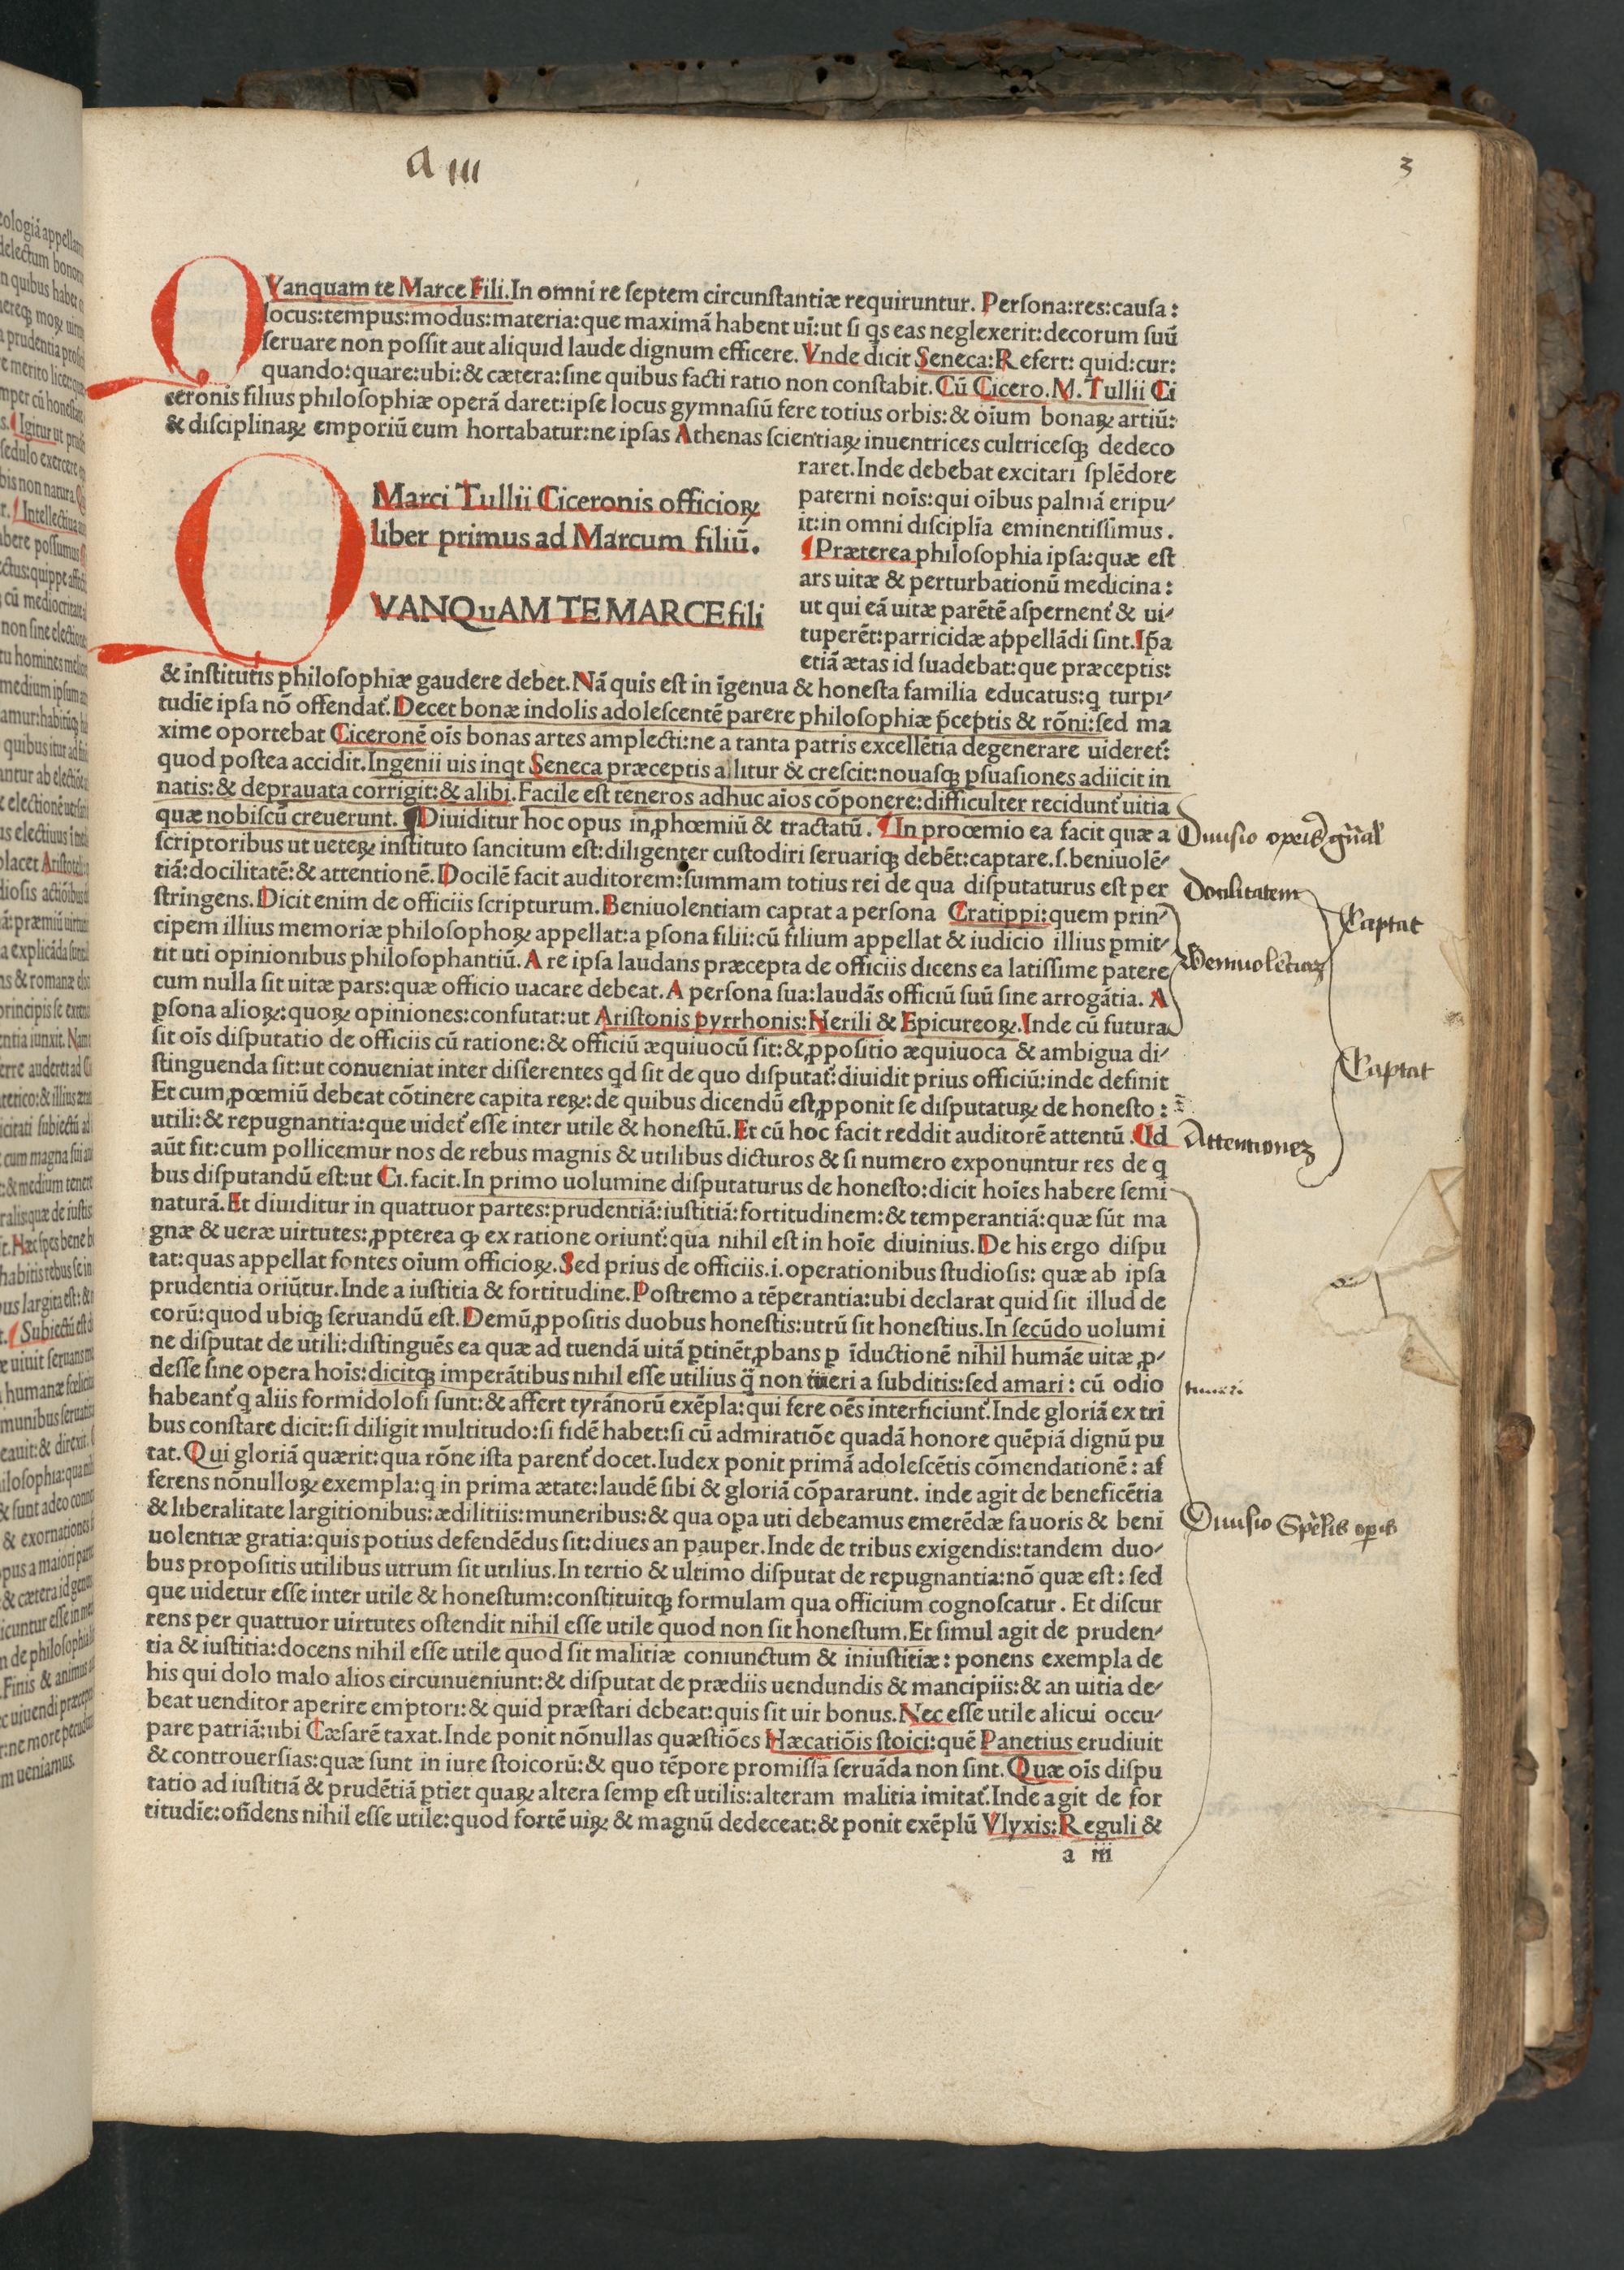 a III
3
QVanquam te Marce Fili.In omni re ſeptem circunſtantiæ requiruntur. Perſona:res:cauſa:
locus:tempus:modus:materia:que maximā habent uī:ut ſi qs eas neglexerit:decorum ſuū
ſeruare non poſſit aut aliquid laude dignum efficere. Vnde dicit Seneca:Refert: quid:cur:
quando:quare:ubi:& cætera:ſine quibus facti ratio non conſtabit.Cū Cicero.M.Tullii Ci
ceronis filius philoſophiæ operā daret:ipſe locus gymnaſiū fere totius orbis:& oīum bonaꝝ artiū:
& diſciplinaꝝ emporiū eum hortabatur:ne ipſas Athenas ſcientiaꝝ inuentrices cultriceſqꝫ dedeco
raret.Inde debebat excitari ſplēdore
paterni noīs:qui oībus palmā eripu-
it:in omni diſciplīa eminentiſſimus.
Præterea philoſophia ipſa:quæ eſt
ars uitæ & perturbationū medicina:
ut qui eā uitæ parētē aſpernent̃ & ui-
tuperēt:parricidæ appellādi ſint.Ip̄a
etiā ætas id ſuadebat:que præceptis:
Marci Tullii Ciceronis officioꝝ
liber primus ad Marcum filiū.
QVANQuAM TE MARCE fili
& inſtitutis philoſophiæ gaudere debet.Nā quis eſt in īgenua & honeſta familia educatus:q turpi-
tudīe ipſa nō offendat̃.Decet bonæ indolis adoleſcentē parere philoſophiæ p̄ceptis & rōni:ſed ma
xime oportebat Ciceronē oīs bonas artes amplecti:ne a tanta patris excellētia degenerare uideret̃:
quod poſtea accidit.Ingenii uis inqt Seneca præceptis alitur & creſcit:nouaſqꝫ ꝑſuaſiones adiicit in
natis:& deprauata corrigit:& alibi.Facile eſt teneros adhuc aīos cōponere:difficulter recidunt̃ uitia
quæ nobiſcū creuerunt. Diuiditur hoc opus in ꝓhœmiū & tractatū. In procemio ea facit quæ a
ſcriptoribus ut ueteꝝ inſtituto ſancitum eſt:diligenter cuſtodiri ſeruariqꝫ debēt:captare.ſ.beniuolē-
tiā:docilitatē:& attentionē.Docilē facit auditorem:ſummam totius rei de qua diſputaturus eſt per
ſtringens.Dicit enim de officiis ſcripturum.Beniuolentiam captat a perſona Cratippi:quem prin-
cipem illius memoriæ philoſophoꝝ appellat:a ꝑſona filii:cū filium appellat & iudicio illius ꝑmit-
tit uti opinionibus philoſophantiū.A re ipſa laudans præcepta de officiis dicens ea latiſſime patere
cum nulla ſit uitæ pars:quæ officio uacare debeat.A perſona ſua:laudās officiū ſuū ſine arrogātia. A
ꝑſona alioꝝ:quoꝝ opiniones:confutat:ut Ariſtonis pyrrhonis:Nerili & Epicureoꝝ.Inde cū futura
ſit oīs diſputatio de officiis cū ratione:& officiū æquiuocū ſit:& ꝓpoſitio æquiuoca & ambigua di-
ſtinguenda ſit:ut conueniat inter diſſerentes qd ſit de quo diſputat̃:diuidit prius officiū:inde definit
Et cum ꝓœmiū debeat cōtinere capita reꝝ:de quibus dicendū eſt,ꝓponit ſe diſputatuꝝ de honeſto:
utili:& repugnantia:que uidet̃ eſſe inter utile & honeſtū.Et cū hoc facit reddit auditorē attentū.Qd
aūt fit:cum pollicemur nos de rebus magnis & utilibus dicturos & ſi numero exponuntur res de q
bus diſputandū eſt:ut Ci.facit.In primo uolumine diſputaturus de honeſto:dicit hoīes habere ſemi
naturā.Et diuiditur in quattuor partes:prudentiā:iuſtitiā:fortitudinem:& temperantiā:quæ ſūt ma
gnæ & ueræ uirtutes:ꝓpterea ꝙ ex ratione oriunt̃:qua nihil eſt in hoīe diuinius.De his ergo diſpu
tat:quas appellat fontes oīum officioꝝ.Sed prius de officiis.i.operationibus ſtudioſis: quæ ab ipſa
prudentia oriūtur.Inde a iuſtitia & fortitudine.Poſtremo a tēperantia:ubi declarat quid ſit illud de
corū:quod ubiqꝫ ſeruandū eſt.Demū ꝓpoſitis duobus honeſtis:utrū ſit honeſtius.In ſecūdo uolumi
ne diſputat de utili:diſtinguēs ea quæ ad tuendā uitā ꝑtinēt,ꝓbans ꝑ īductionē nihil humāe uitæ ꝓ-
deſſe ſine opera hoīs:dicitqꝫ imperātibus nihil eſſe utilius q̄ non tueri a ſubditis:ſed amari: cū odio
habeant̃ q aliis formidoloſi ſunt:& affert tyrānorū exēpla:qui fere oēs interficiunt̃.Inde gloriā ex tri
bus conſtare dicit:ſi diligit multitudo:ſi fidē habet:ſi cū admiratiōe quadā honore quēpiā dignū pu
tat.Qui gloriā quærit:qua rōne iſta parent̃ docet.Iudex ponit primā adoleſcētis cōmendationē: af
ferens nōnulloꝝ exempla:q in prima ætate:laudē ſibi & gloriā cōpararunt. inde agit de beneficētia
& liberalitate largitionibus:ædilitiis:muneribus:& qua oꝑa uti debeamus emerēdæ fauoris & beni
uolentiæ gratia:quis potius defendēdus ſit:diues an pauper.Inde de tribus exigendis:tandem duo-
bus propoſitis utilibus utrum ſit utilius.In tertio & ultimo diſputat de repugnantia:nō quæ eſt: ſed
que uidetur eſſe inter utile & honeſtum:conſtituitqꝫ formulam qua officium cognoſcatur. Et diſcur
rens per quattuor uirtutes oſtendit nihil eſſe utile quod non ſit honeſtum.Et ſimul agit de pruden-
tia & iuſtitia:docens nihil eſſe utile quod ſit malitiæ coniunctum & iniuſtitiæ: ponens exempla de
his qui dolo malo alios circunueniunt:& diſputat de prædiis uendundis & mancipiis:& an uitia de-
beat uenditor aperire emptori:& quid præſtari debeat:quis ſit uir bonus.Nec eſſe utile alicui occu-
pare patriā:ubi Cæſarē taxat.Inde ponit nōnullas quæſtiōes Hæcatiōis ſtoici:quē Panetius erudiuit
& controuerſias:quæ ſunt in iure ſtoicorū:& quo tēpore promiſſa ſeruāda non ſint.Quæ oīs diſpu
tatio ad iuſtitiā & prudētiā ꝑtiet quaꝝ altera ſemꝑ eſt utilis:alteram malitia imitat̃.Inde agit de for
titudīe:oñdens nihil eſſe utile:quod fortē uiꝝ & magnū dedeceat:& ponit exēplū Vlyxis:Reguli &
a iii
Diuiſio operis gn̄al
Docilitatem
Captat
Beniuolētiaꝫ
Captat
Attentioneꝫ
timeri
Diuiſio Spēlis opis